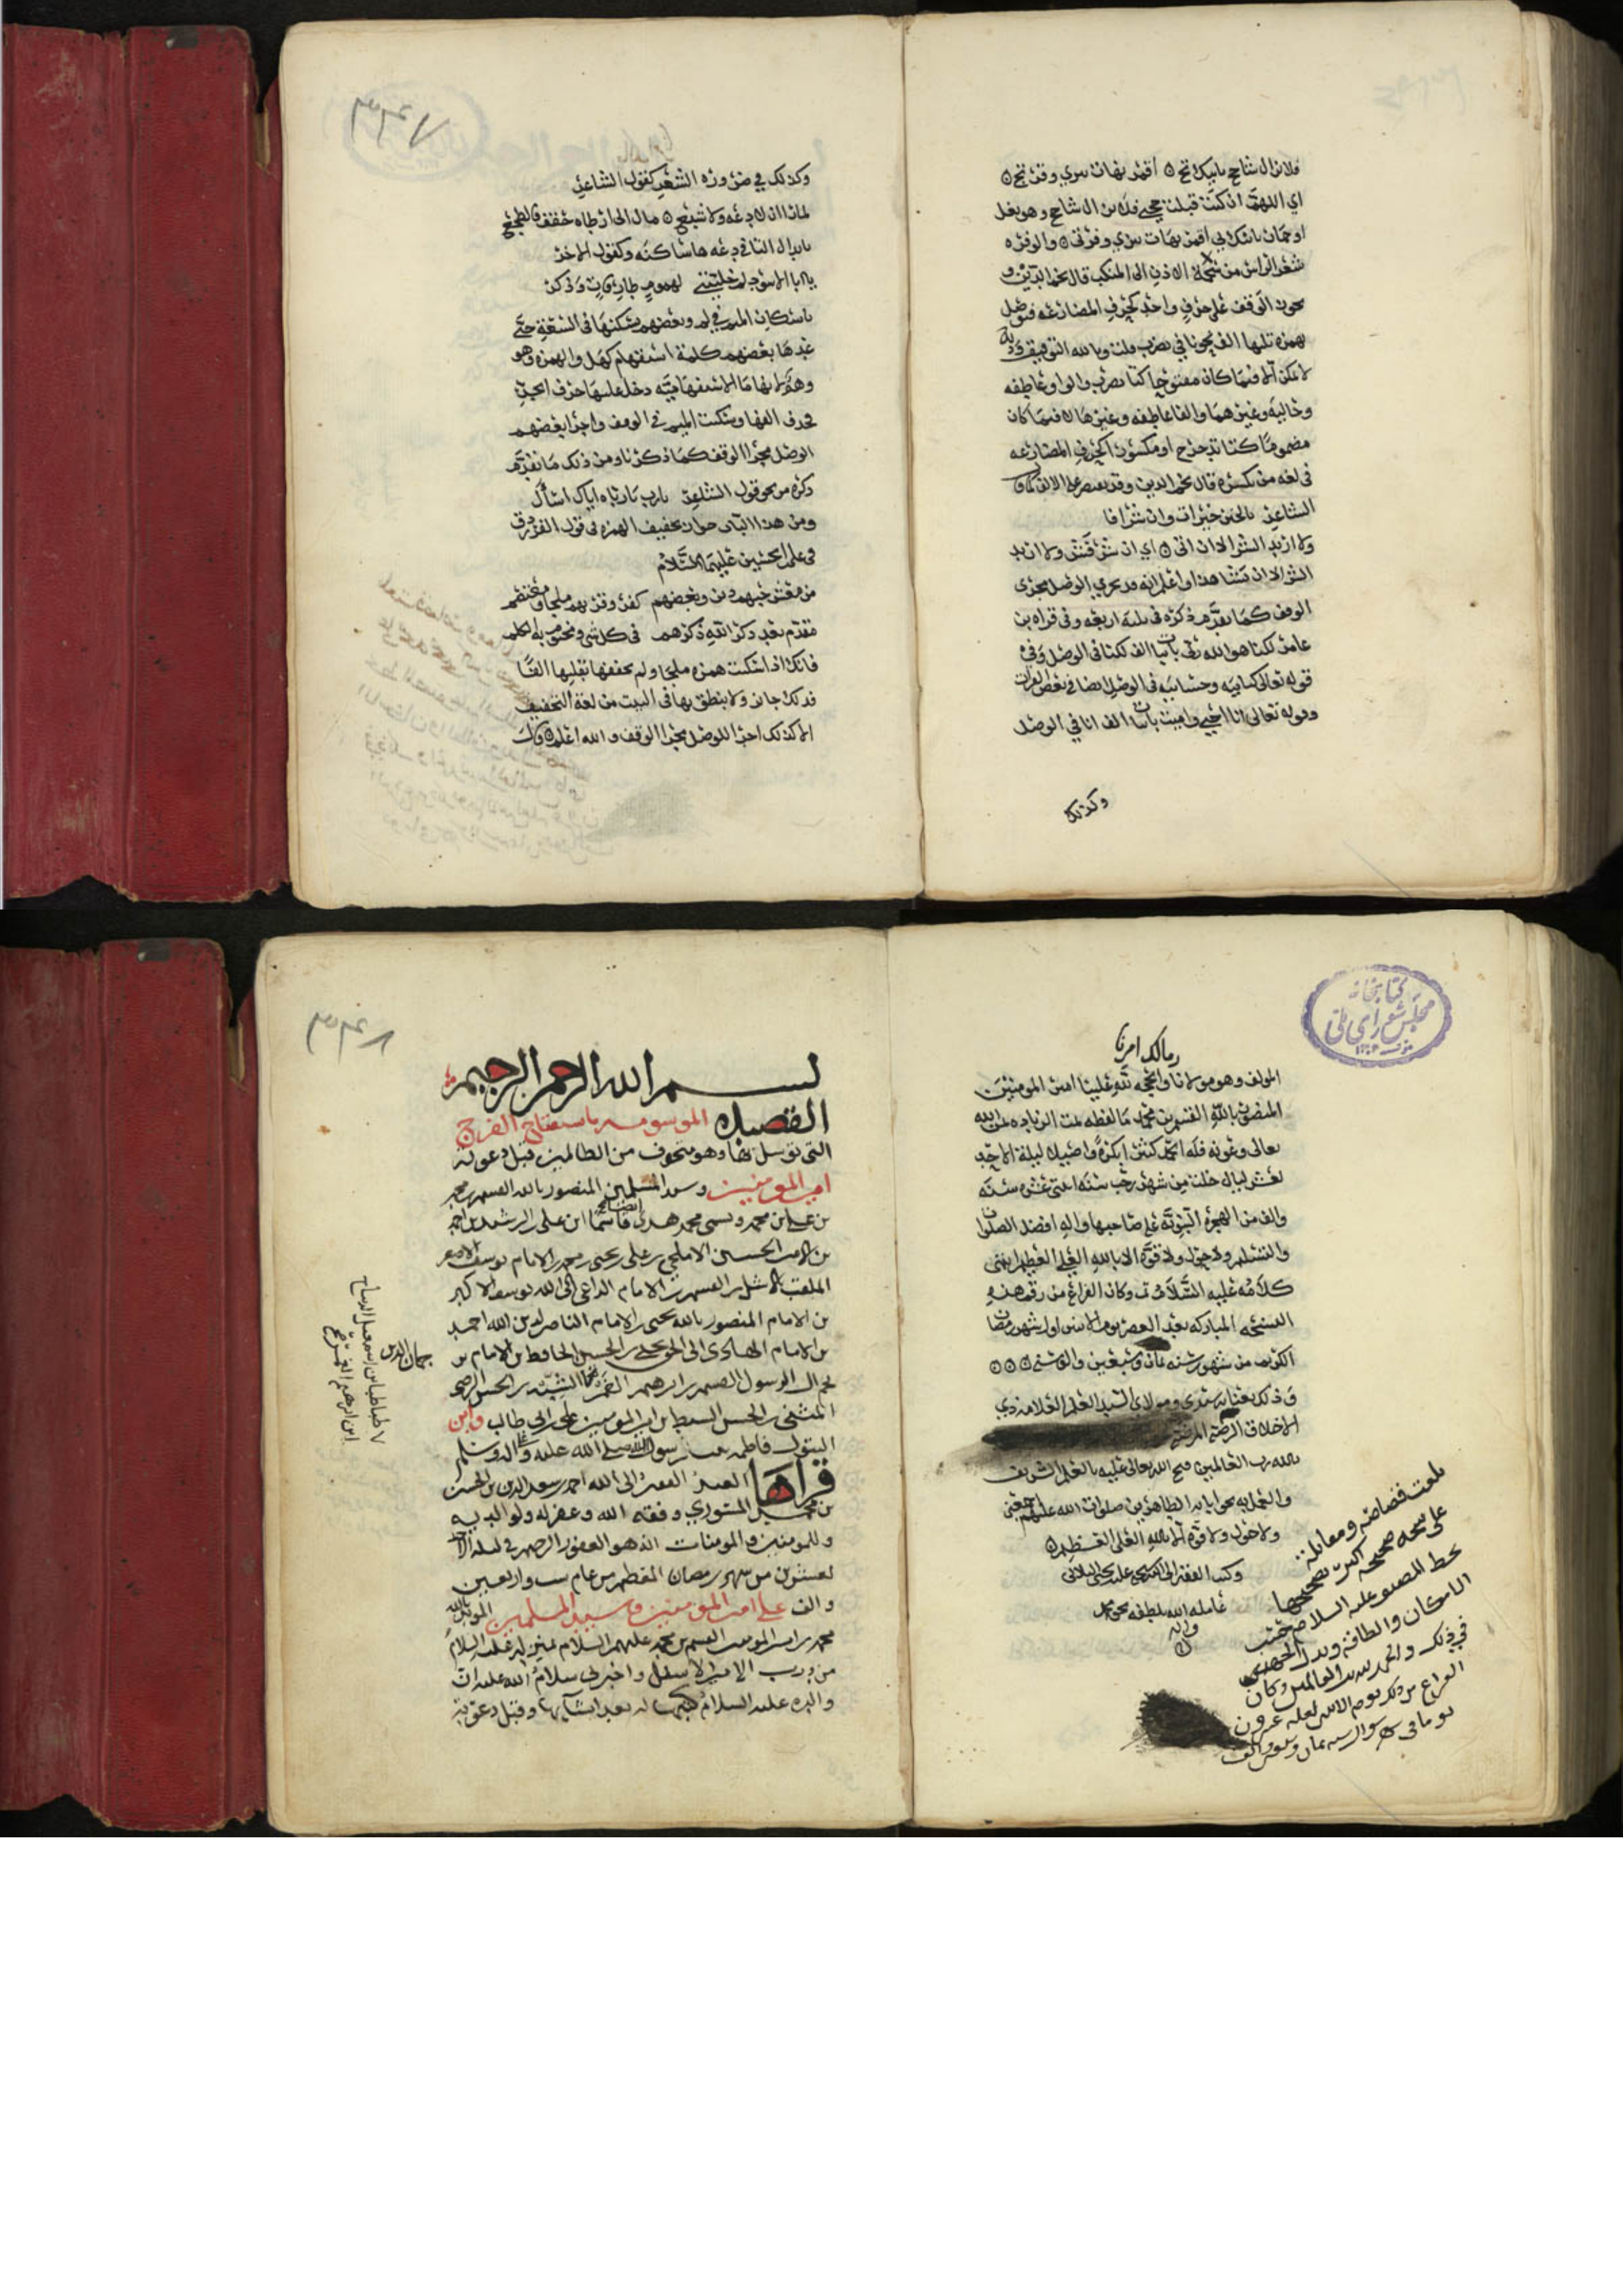 فلا يزال شاحج ياتيك بج ○ اقمر نهات ينزي وفرتج ○
اي اللهم ان كنت قبلت حجتي فلا يزال شاحج وهو بغل
او حمار ياتيك بي اقمر نهات ينزي وفرتي ○ والوفره
شعر الراس من شحمة الاذن الى المنكب قال نجم الدين و
يجوز الوقف على حرف واحد كحرف المضارعه فيوصل
بهمزه تليها الف
لا يكن الا فيما كان مفتوحا كتا تضرب والواو عاطفه
وحاليه وغيرهما والفا عاطفه وغيرها لا فيما كان
مضموما كتا تدحرج او مكسورا كحرف المضارعه
في لغه من يكسره قال نجم الدين وقد يقتصر على الالف كما قال
الشاعر بالخير خيرات وان شرا فا
ولا اريد الشر الا ان تا ○ اي ان شر فشر ولا اريد
الشر الا ان تشا هذا واعلم انه قد يجري الوصل مجرى
الوقف كما تقدم ذكره في ثلثه اربعه وفي قراه بن
عامر لكنا هو الله ربي باثبات الف لكنا في الوصل وفي
قوله تعالى كتابيه وحسابيه في الوصل ايضا في بعض القرات
وقوله تعالى انا احيي واميت باثبات الف انا في الوصل
وكذلك
٣٣٧
وكذلك في ضروره الشعر كقول الشاعر
لما راى ان لا دعه ولا شبع ○ مال الى ارطاه حقف فالطجع
بابدال التا في دعه ها ساكنه وكقول الاخر
يا ابا الاسود لم خليتني لهموم طارقات وذكر
باسكان الميم في لم وبعضهم يسكنها في السعة حتى
عدها بعضهم كلمة استفهام كهل والهمزه وهو
وهم لانها ما الاستفهاميه دخل عليها حرف الجر
فحذف الفها وسكنت الميم في الوقف واجرا بعضهم
الوصل مجرا الوقف كما ذكرنا ومن ذلك ما تقدم
ذكره من نحو قول الشاعر يا رب يا رباه اياك اسأل
ومن هذا الباب جواز تخفيف الهمزه في قول الفرزدق
في علي بن الحسين عليهما السلام
من معشر حبهم دين وبغضهم كفر وقربهم ملجا ومعتصم
مقدم بعد ذكر الله ذكرهم في كل شي ومختوم به الكلم
فانك اذا سكنت همزه ملجا ولم تخففها تقلبها الفا
فذلك جائز ولا ينطق بها في البيت من لغة التخفيف
الا كذلك اجرا للوصل مجرا الوقف والله اعلم ○ قال
كتابخانه
مجلس شورای ملی
رمالك امرنا
المولف وهو مولانا والحجه لله علينا امير المومنين
المنصور بالله القسم بن محمد ما لفظه تمت الزياده بمن الله
تعالى وعونه فله الحمد كثيرا بكرة واصيلا ليلة الاحد
لعشر ليال خلت من شهر رجب سنه اثنتي عشره سنه
والف من الهجره النبويه على صاحبها واله افضل الصلوات
والتسليم ولا حول ولا قوه الا بالله العلي العظيم انتهى
كلامه عليه السلام تم وكان الفراغ من رقم هذه
النسخه المباركه بعد العصر يوم الاثنين اول شهر رمضان
الكريم من شهور سنه ثمان وسبعين والف سنه ○○○
وذلك بعنايه سيدي ومولاي السيد العلم العلامه ذي
الاخلاق الرضيه المرضيه
بالله رب العالمين فتح الله تعالى عليه بالعلم الشريف
والعمل به بحق ابايه الطاهرين صلوات الله عليهم اجمعين
ولا حول ولا قوه الا بالله العلي العظيم ○
وكتب الفقير الى الله
عامله الله بلطفه بحق محمد
واله
بلغت قصاصه ومقابله
على نسخه صحيحه اكثر تصحيحها
بخط المصنف عليه السلام حسب
الامكان والطاقه وبذل الجهد
في ذلك والحمد لله رب العالمين وكان
الفراغ من ذلك يوم الاثنين لعله عشرون
يوما في شهر شوال سنه ثمان وسبعين والف
٣٣٨
بسم الله الرحمن الرحيم
القصيده الموسومه باستفتاح الفرج
التي توسل بها وهو متخوف من الظالمين قبل دعوته
امير المومنين وسيد المسلمين المنصور بالله القسم بن محمد
بن علي بن محمد ويسمى محمد هذا ايضا قاسما ابن علي الرشيد بن احمد
بن الامير الحسين الاملحي بن علي بن يحيى بن محمد بن الامام يوسف الاصغر
الملقب بالاشل بن القسم بن الامام الداعي الى الله يوسف الاكبر
بن الامام المنصور بالله يحيى بن الامام الناصر لدين الله احمد
بن الامام الهادي الى الحق يحيى بن الحسين الحافظ بن الامام
نجم ال الرسول القسم بن ابرهيم الغمر بن الحسن الرضى
المثنى بن الحسن السبط بن امير المومنين علي بن ابي طالب وابن
البتول فاطمه بنت رسول الله صلى الله عليه وعلى اله وسلم
قراها العبد الفقير الى الله احمد بن سعد الدين بن الحسين
بن محمد المسوري وفقه الله وغفر له ولوالديه
وللمومنين والمومنات انه هو الغفور الرحيم في ليله الاحد
لعشرين من شهر رمضان المعظم من عام ست واربعين
والف على امير المومنين وسيد المسلمين المويد بالله
محمد بن امير المومنين القسم بن محمد عليهم السلام بمنزله عليه السلام
من درب الامير الاسفل واخبرني سلام الله عليه ان
والده عليه السلام كتبها له بعد انشايها وقبل دعوته
جمال الدين
طباطبا بن اسمعيل الديباج
ابن ابرهيم الغمر